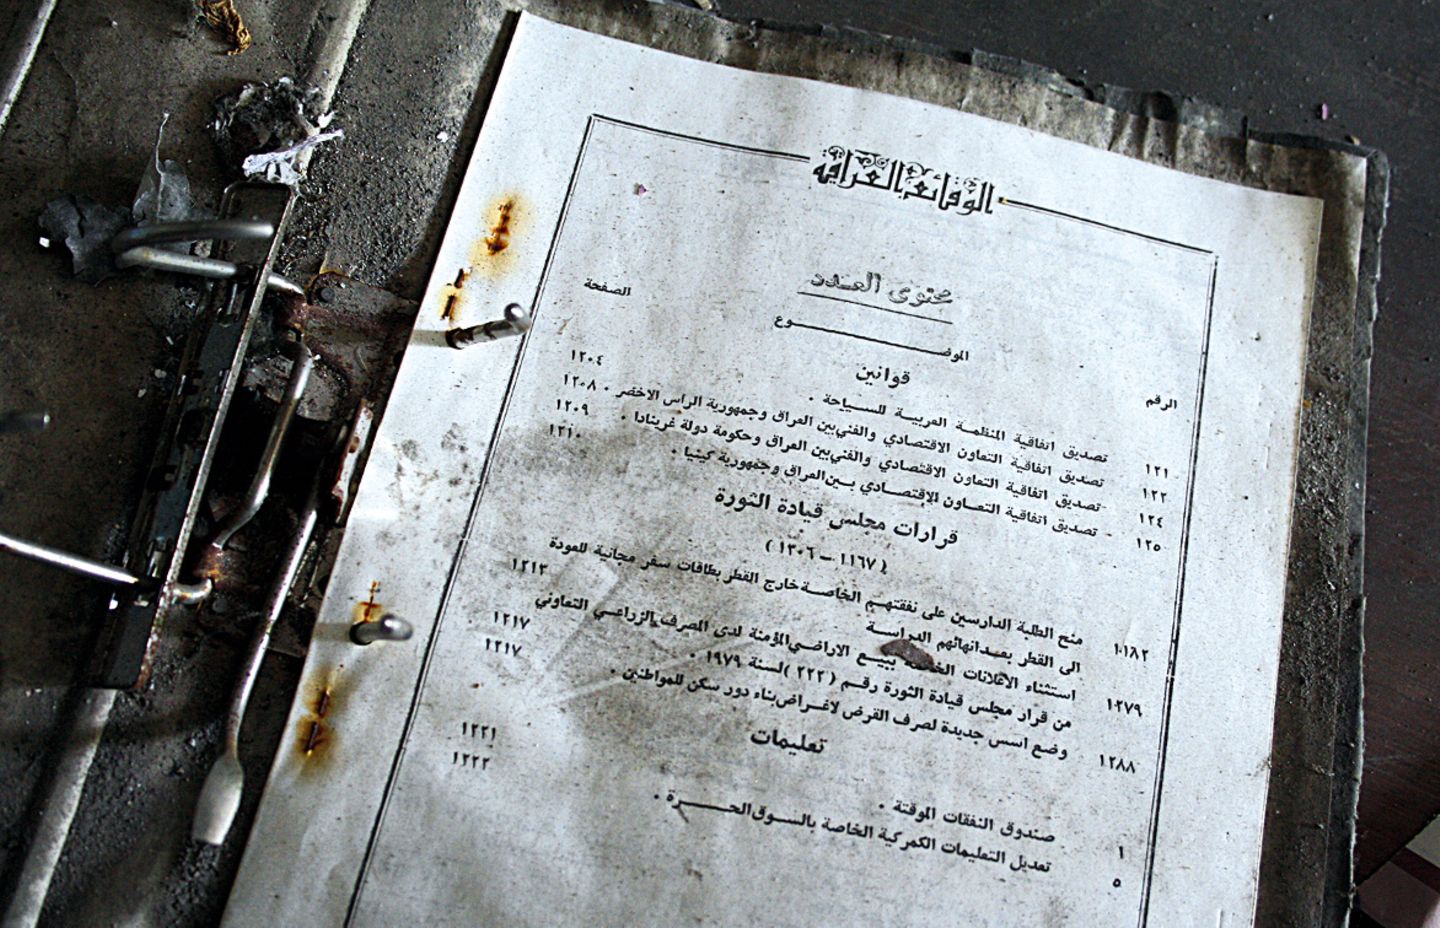 الوقائع العراقية
محتوى العدد
الرقم الموضـــــوع الصفحة
قوانين
١٢١ تصديق اتفاقية المنظمة العربية للسياحة . ١٢٠٤
١٢٢ تصديق اتفاقية التعاون الاقتصادي والفني بين العراق وجمهورية الراس الاخضر . ١٢٠٨
١٢٤ تصديق اتفاقية التعاون الاقتصادي والفني بين العراق وحكومة دولة غرينادا . ١٢٠٩
١٢٥ تصديق اتفاقية التعاون الاقتصادي بين العراق وجمهورية كينيا . ١٢١٠
قرارات مجلس قيادة الثورة
( ١١٦٧ – ١٣٠٦ )
١١٨٢ منح الطلبة الدارسين على نفقتهم الخاصة خارج القطر بطاقات سفر مجانية للعودة
الى القطر بعد انهائهم الدراسة ١٢١٣
١٢٧٩ استثناء الاعلانات الخاصة ببيع الاراضي المؤمنة لدى المصرف الزراعي التعاوني
من قرار مجلس قيادة الثورة رقم ( ٢٢٢ ) لسنة ١٩٧٩ . ١٢١٧
١٢٨٨ وضع اسس جديدة لصرف القرض لاغراض بناء دور سكن للمواطنين . ١٢١٧
تعليمات
١ صندوق النفقات الموقتة . ١٢٢١
٥ تعديل التعليمات الكمركية الخاصة بالسوق الحرة . ١٢٢٢